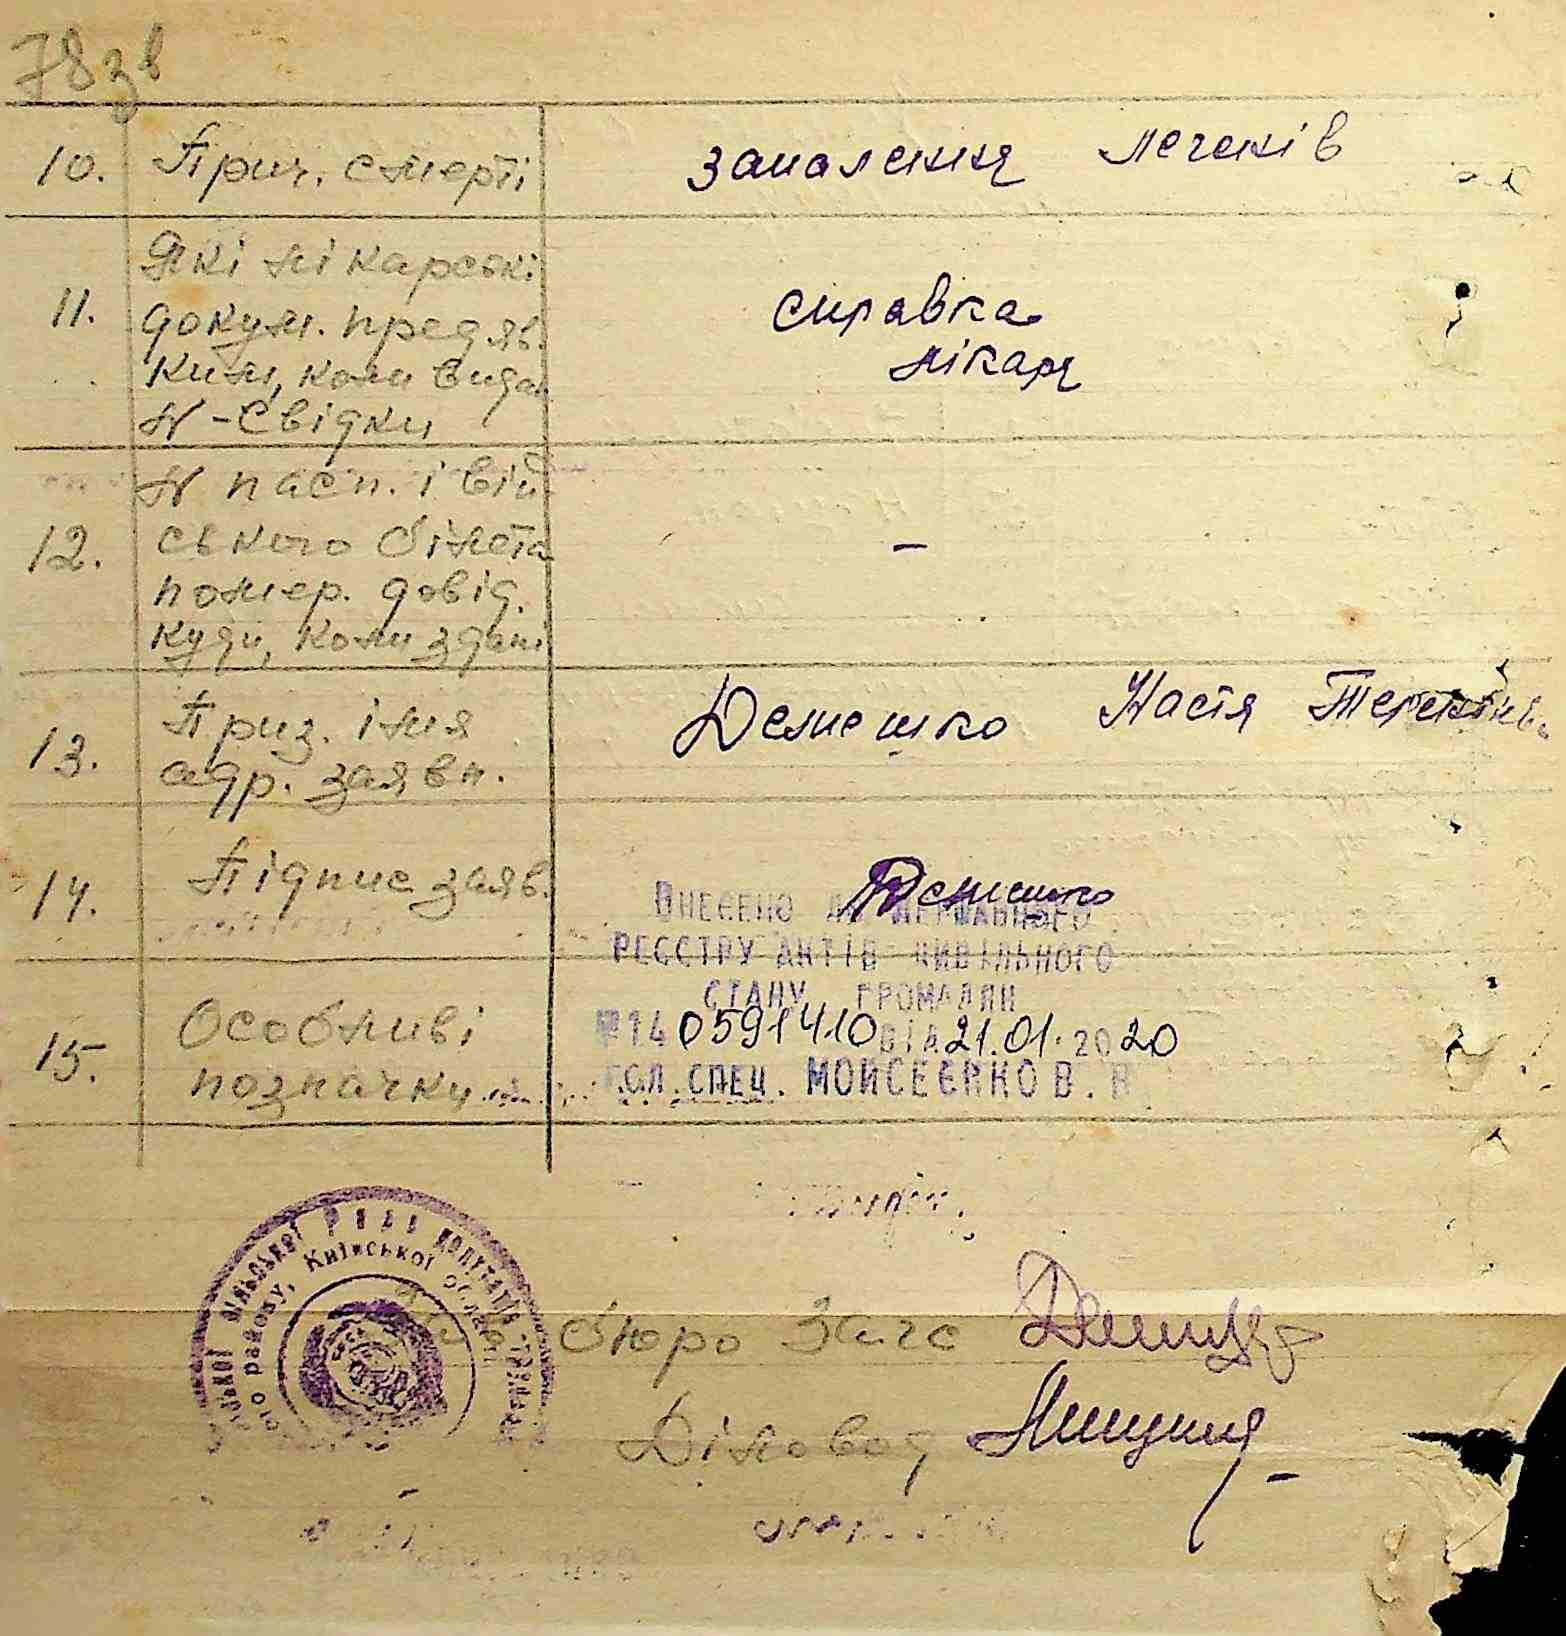 78зв
10. Прич. смерті запалення легенів
11. Які лікарські
докум. предяв.
ким, коли видан
N-Свідки
справка
лікаря
12. N пасп. і вій
ського білета
номер. довід.
куди, коли здані
–
13. Призв. імя
адр. заявн.
Демешко Настя Терентів.
14. Підпис заяв. Демешко
ВНЕСЕНО ДО ДЕРЖАВНОГО
РЕЄСТРУ АКТІВ ЦИВІЛЬНОГО
СТАНУ ГРОМАДЯН
№14 0591410 ВІД 21.01.2020
ГОЛ.СПЕЦ. МОЙСЕЄНКО В.
15. Особливі
позначки
сільської Ради депутатів трудящих
району, Київської області
бюро Загс
Діловод